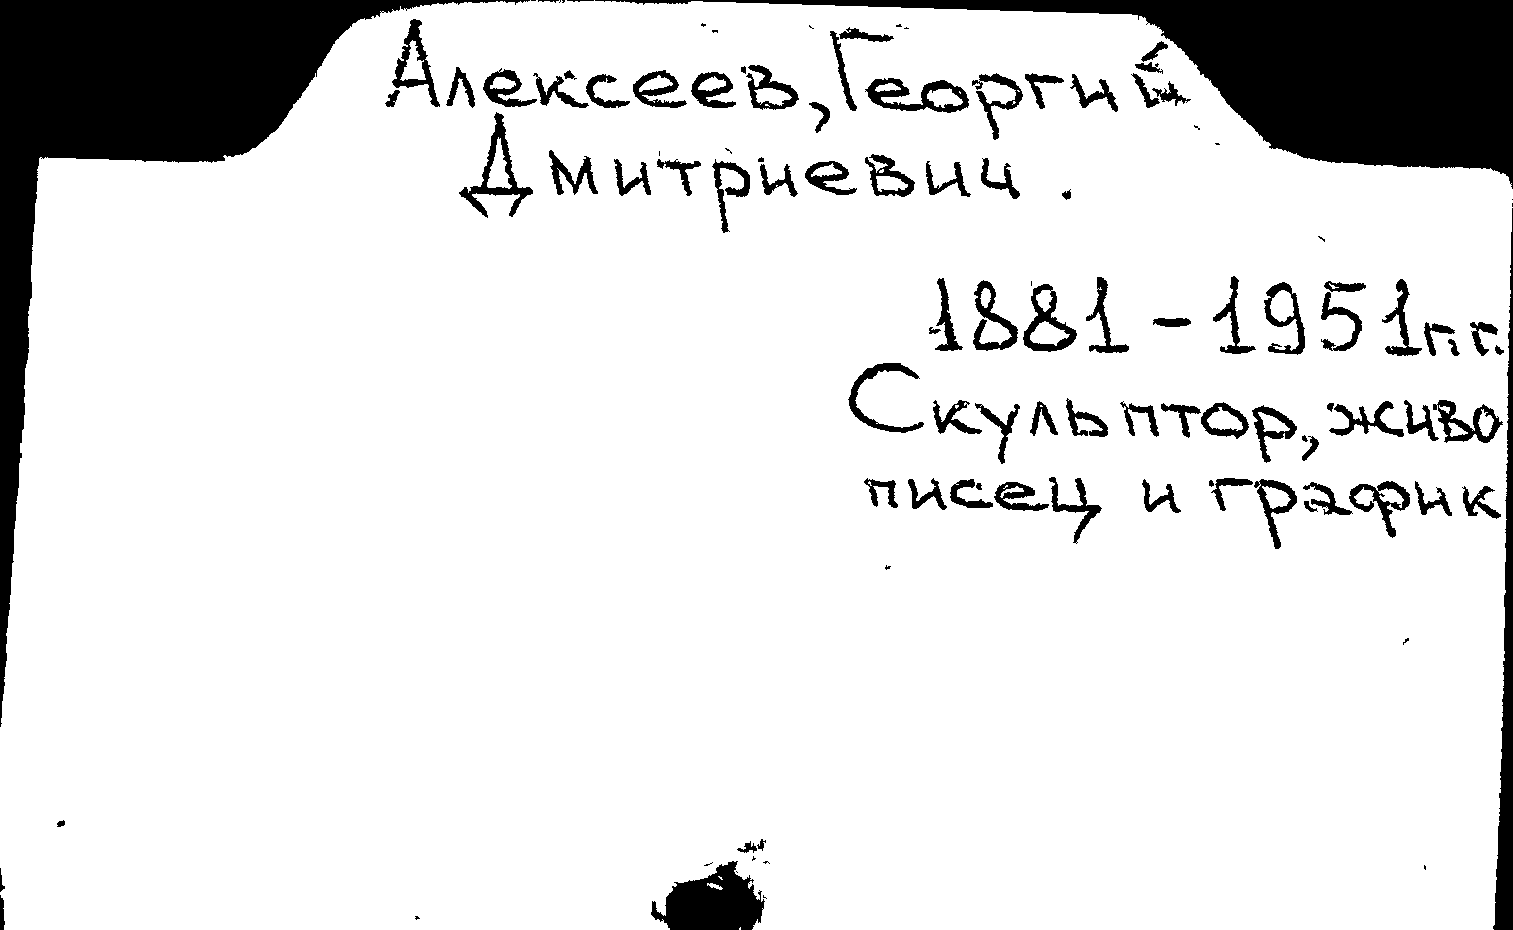 Алексеев, Георгий
Дмитриевич.
1881-1951гг.
Скульптор, живо
писец и график